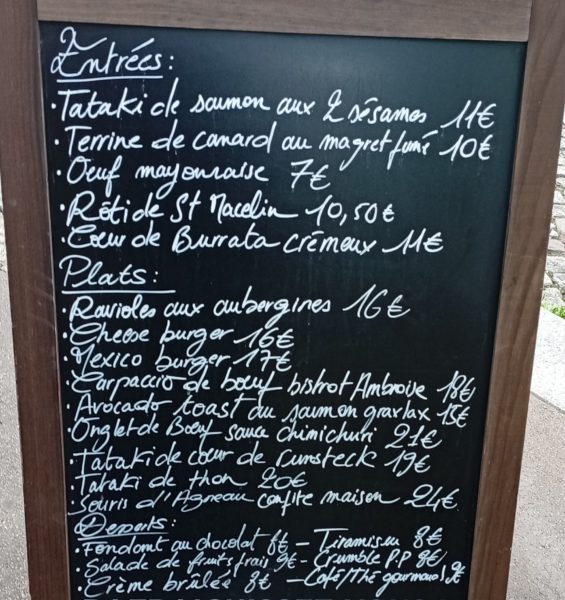 Entrées :
• Tataki de saumon aux 2 sésames 11€
• Terrine de canard au magret fumé 10€
• Oeuf mayonnaise 7€
• Rôti de St Macelin 10,50€
• Coeur de Burrata crémeux 11€
Plats :
• Ravioles aux aubergines 16€
• Cheese burger 16€
• Mexico burger 17€
• Carpaccio de boeuf bistrot Ambroise 18€
• Avocado toast au saumon gravlax 18€
• Onglet de Boeuf sauce chimichuri 21€
• Tataki de coeur de rumsteck 19€
• Tataki de thon 20€
• Souris d'Agneau confite maison 24€
Desserts :
• Fondant au chocolat 8€ – Tiramisu 8€
• Salade de fruits frais 9€ – Crumble P.P 8€
• Crème brûlée 8€ – Café/Thé gourmand 9€